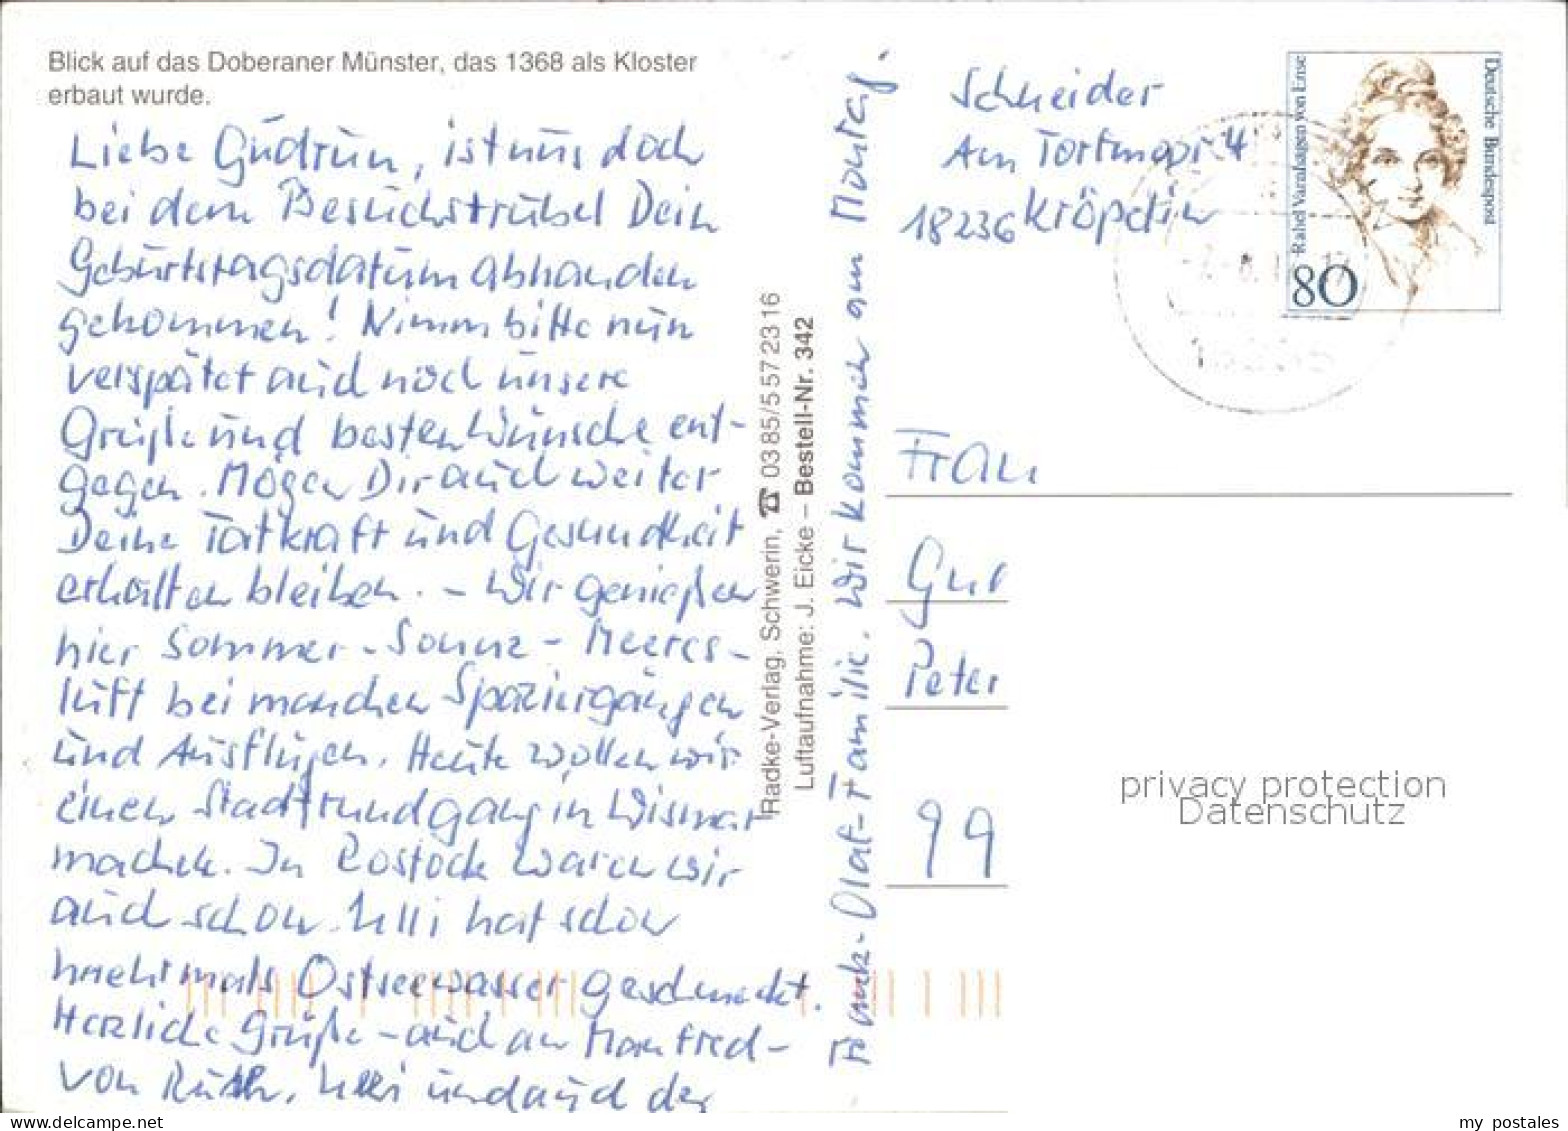 Blick auf das Doberaner Münster, das 1368 als Kloster
erbaut wurde.
Liebe Gudrun, ist uns doch
bei dem Besuchstrubel Dein
Geburtstagsdatum abhanden
gekommen! Nimm bitte nun
verspätet auch noch unsere
Grüße und besten Wünsche ent-
gegen. Mögen Dir auch weiter
Deine Tatkraft und Gesundheit
erhalten bleiben. – Wir genießen
hier Sommer-Sonne-Meeres-
luft bei manchen Spaziergängen
und Ausflügen. Heute wollen wir
einen Stadtrundgang in Wismar
machen. In Rostock waren wir
auch schon. Ulli hat schon
mehrmals Ostseewasser geschmeckt.
Herzliche Grüße – auch an Manfred –
von Ruth, Ulli und auch der
Frank-Olaf-Familie. Wir kommen am Montag.
Radke-Verlag, Schwerin, ☎ 03 85/5 57 23 16
Luftaufnahme: J. Eicke – Bestell-Nr. 342
Schneider
Am 4
18236 Kröpelin
Deutsche Bundespost
Rahel Varnhagen von Ense
80
Frau
Peter
99
privacy protection
Datenschutz
delcampe.net
my_postales